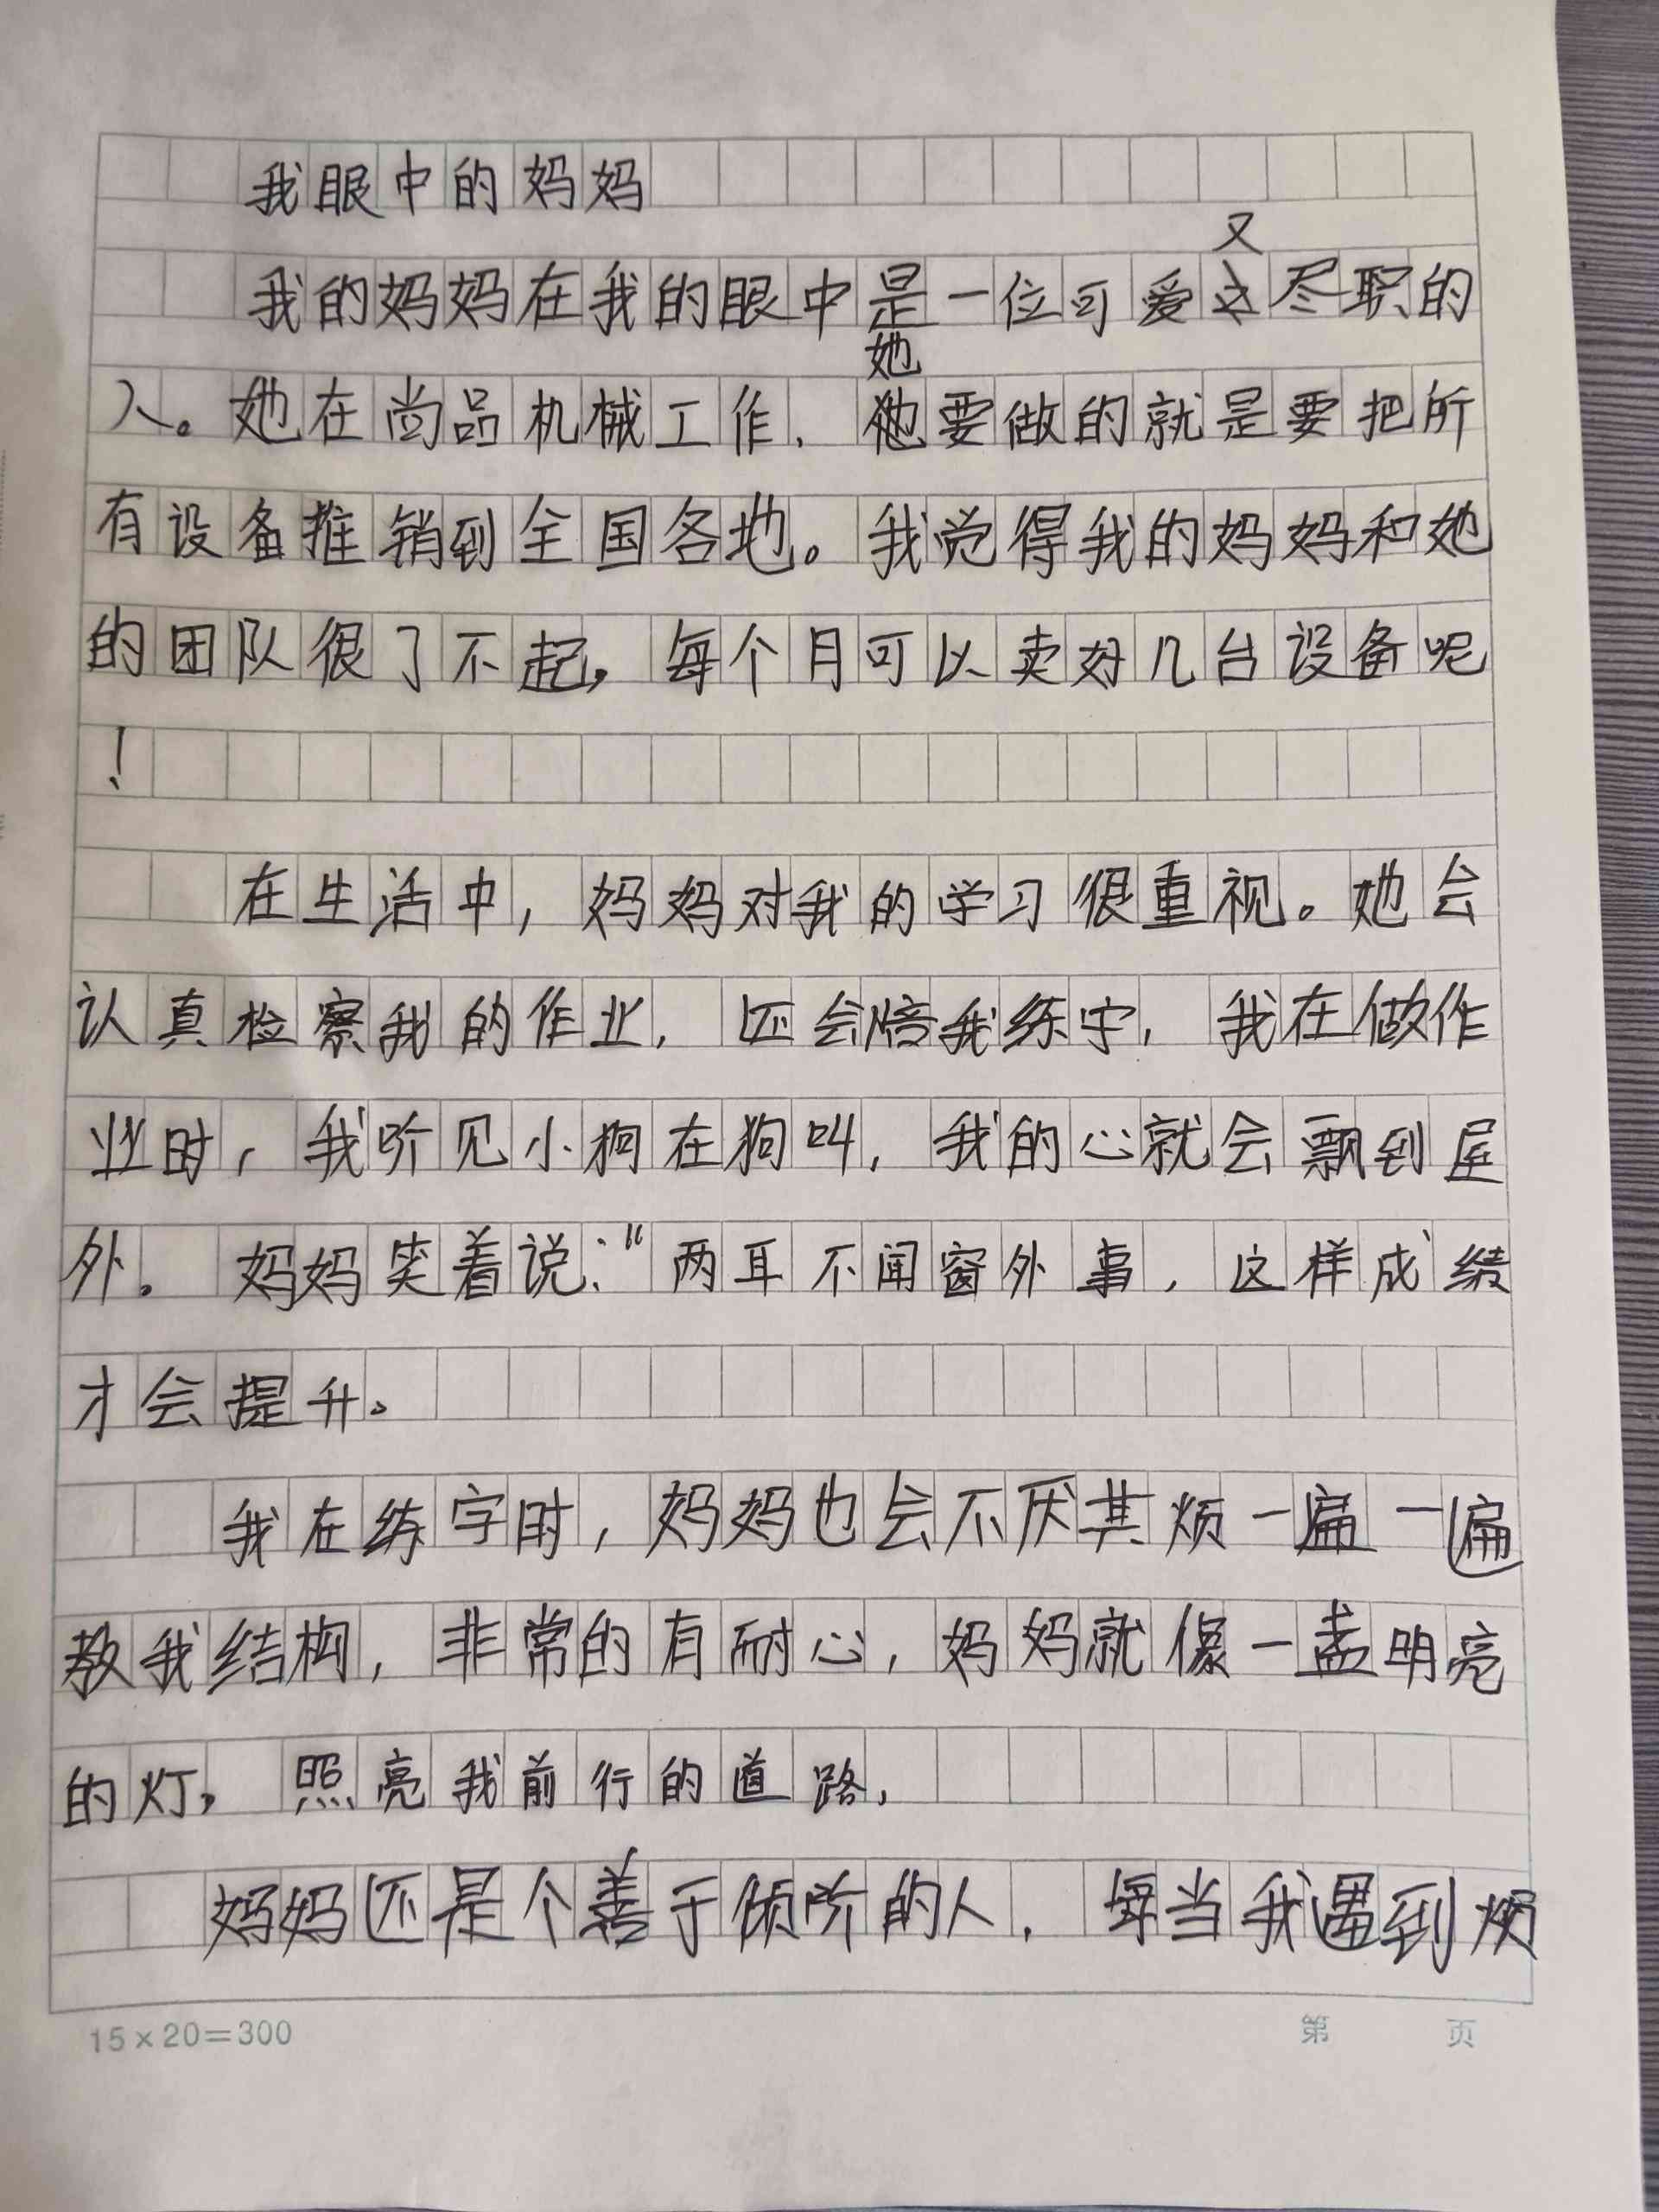 我眼中的妈妈
又
我的妈妈在我的眼中是一位可爱尽职的
她
人。她在尚品机械工作，要做的就是要把所
有设备推销到全国各地。我觉得我的妈妈和她
的团队很了不起，每个月可以卖好几台设备呢
！
在生活中，妈妈对我的学习很重视。她会
认真检察我的作业，还会陪我练字，我在做作
业时，我听见小狗在狗叫，我的心就会飘到屋
外。妈妈笑着说：“两耳不闻窗外事，这样成绩
才会提升。
我在练字时，妈妈也会不厌其烦一扁一遍
教我结构，非常的有耐心，妈妈就像一盏明亮
的灯，照亮我前行的道路，
妈妈还是个善于倾听的人，每当我遇到烦
15×20＝300
第 页